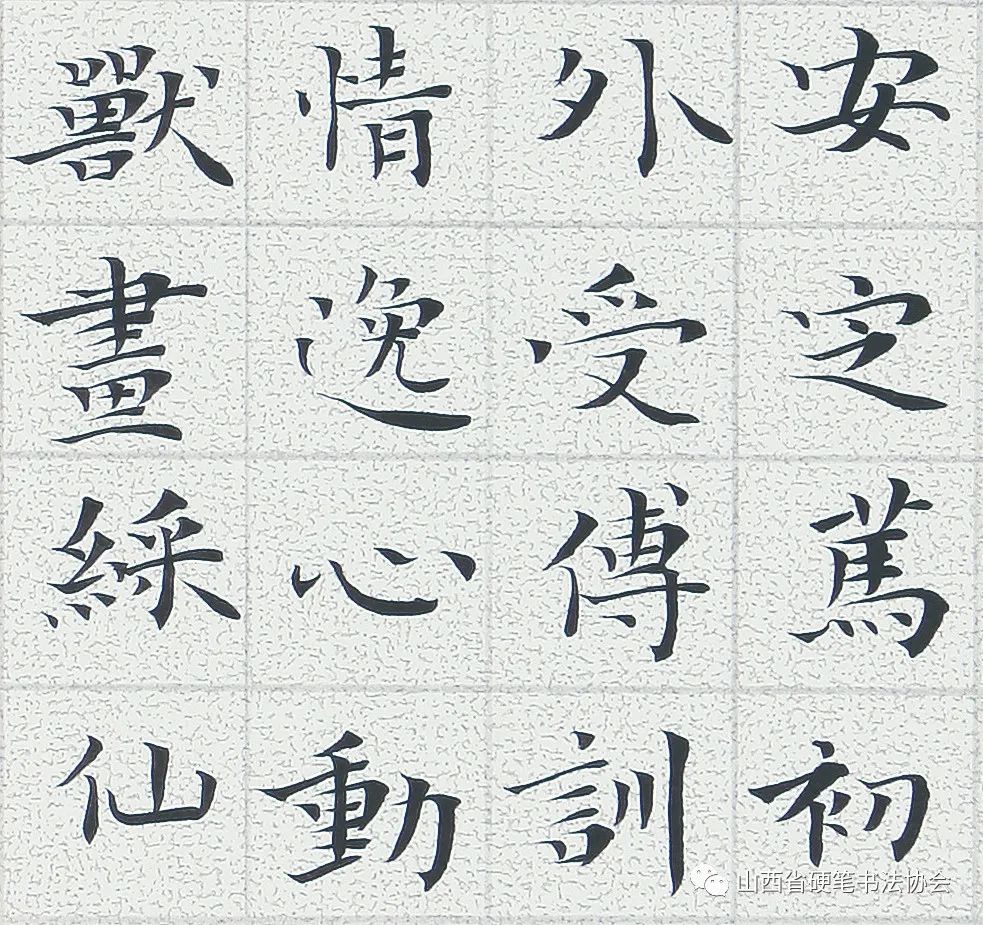 安定篤初
外受傅訓
情逸心動
獸畫綵仙
山西省硬笔书法协会